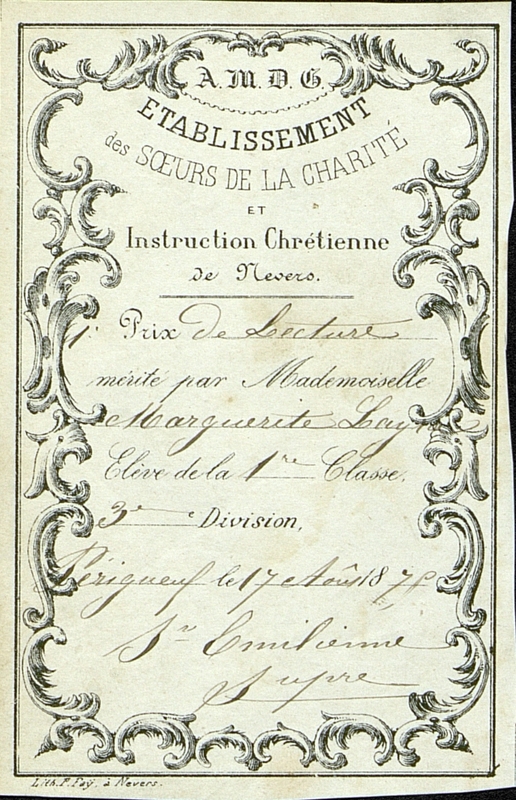 A.M.D.G
ETABLISSEMENT
des SŒURS DE LA CHARITÉ
ET
Instruction Chrétienne
de Nevers.
1r Prix de Lecture
mérité par Mademoiselle
Marguerite
Elève de la 1re Classe.
3e Division,
Périgueux le 17 Août 187
Sr Emilienne
Supre
Lith. P. Faÿ, à Nevers.